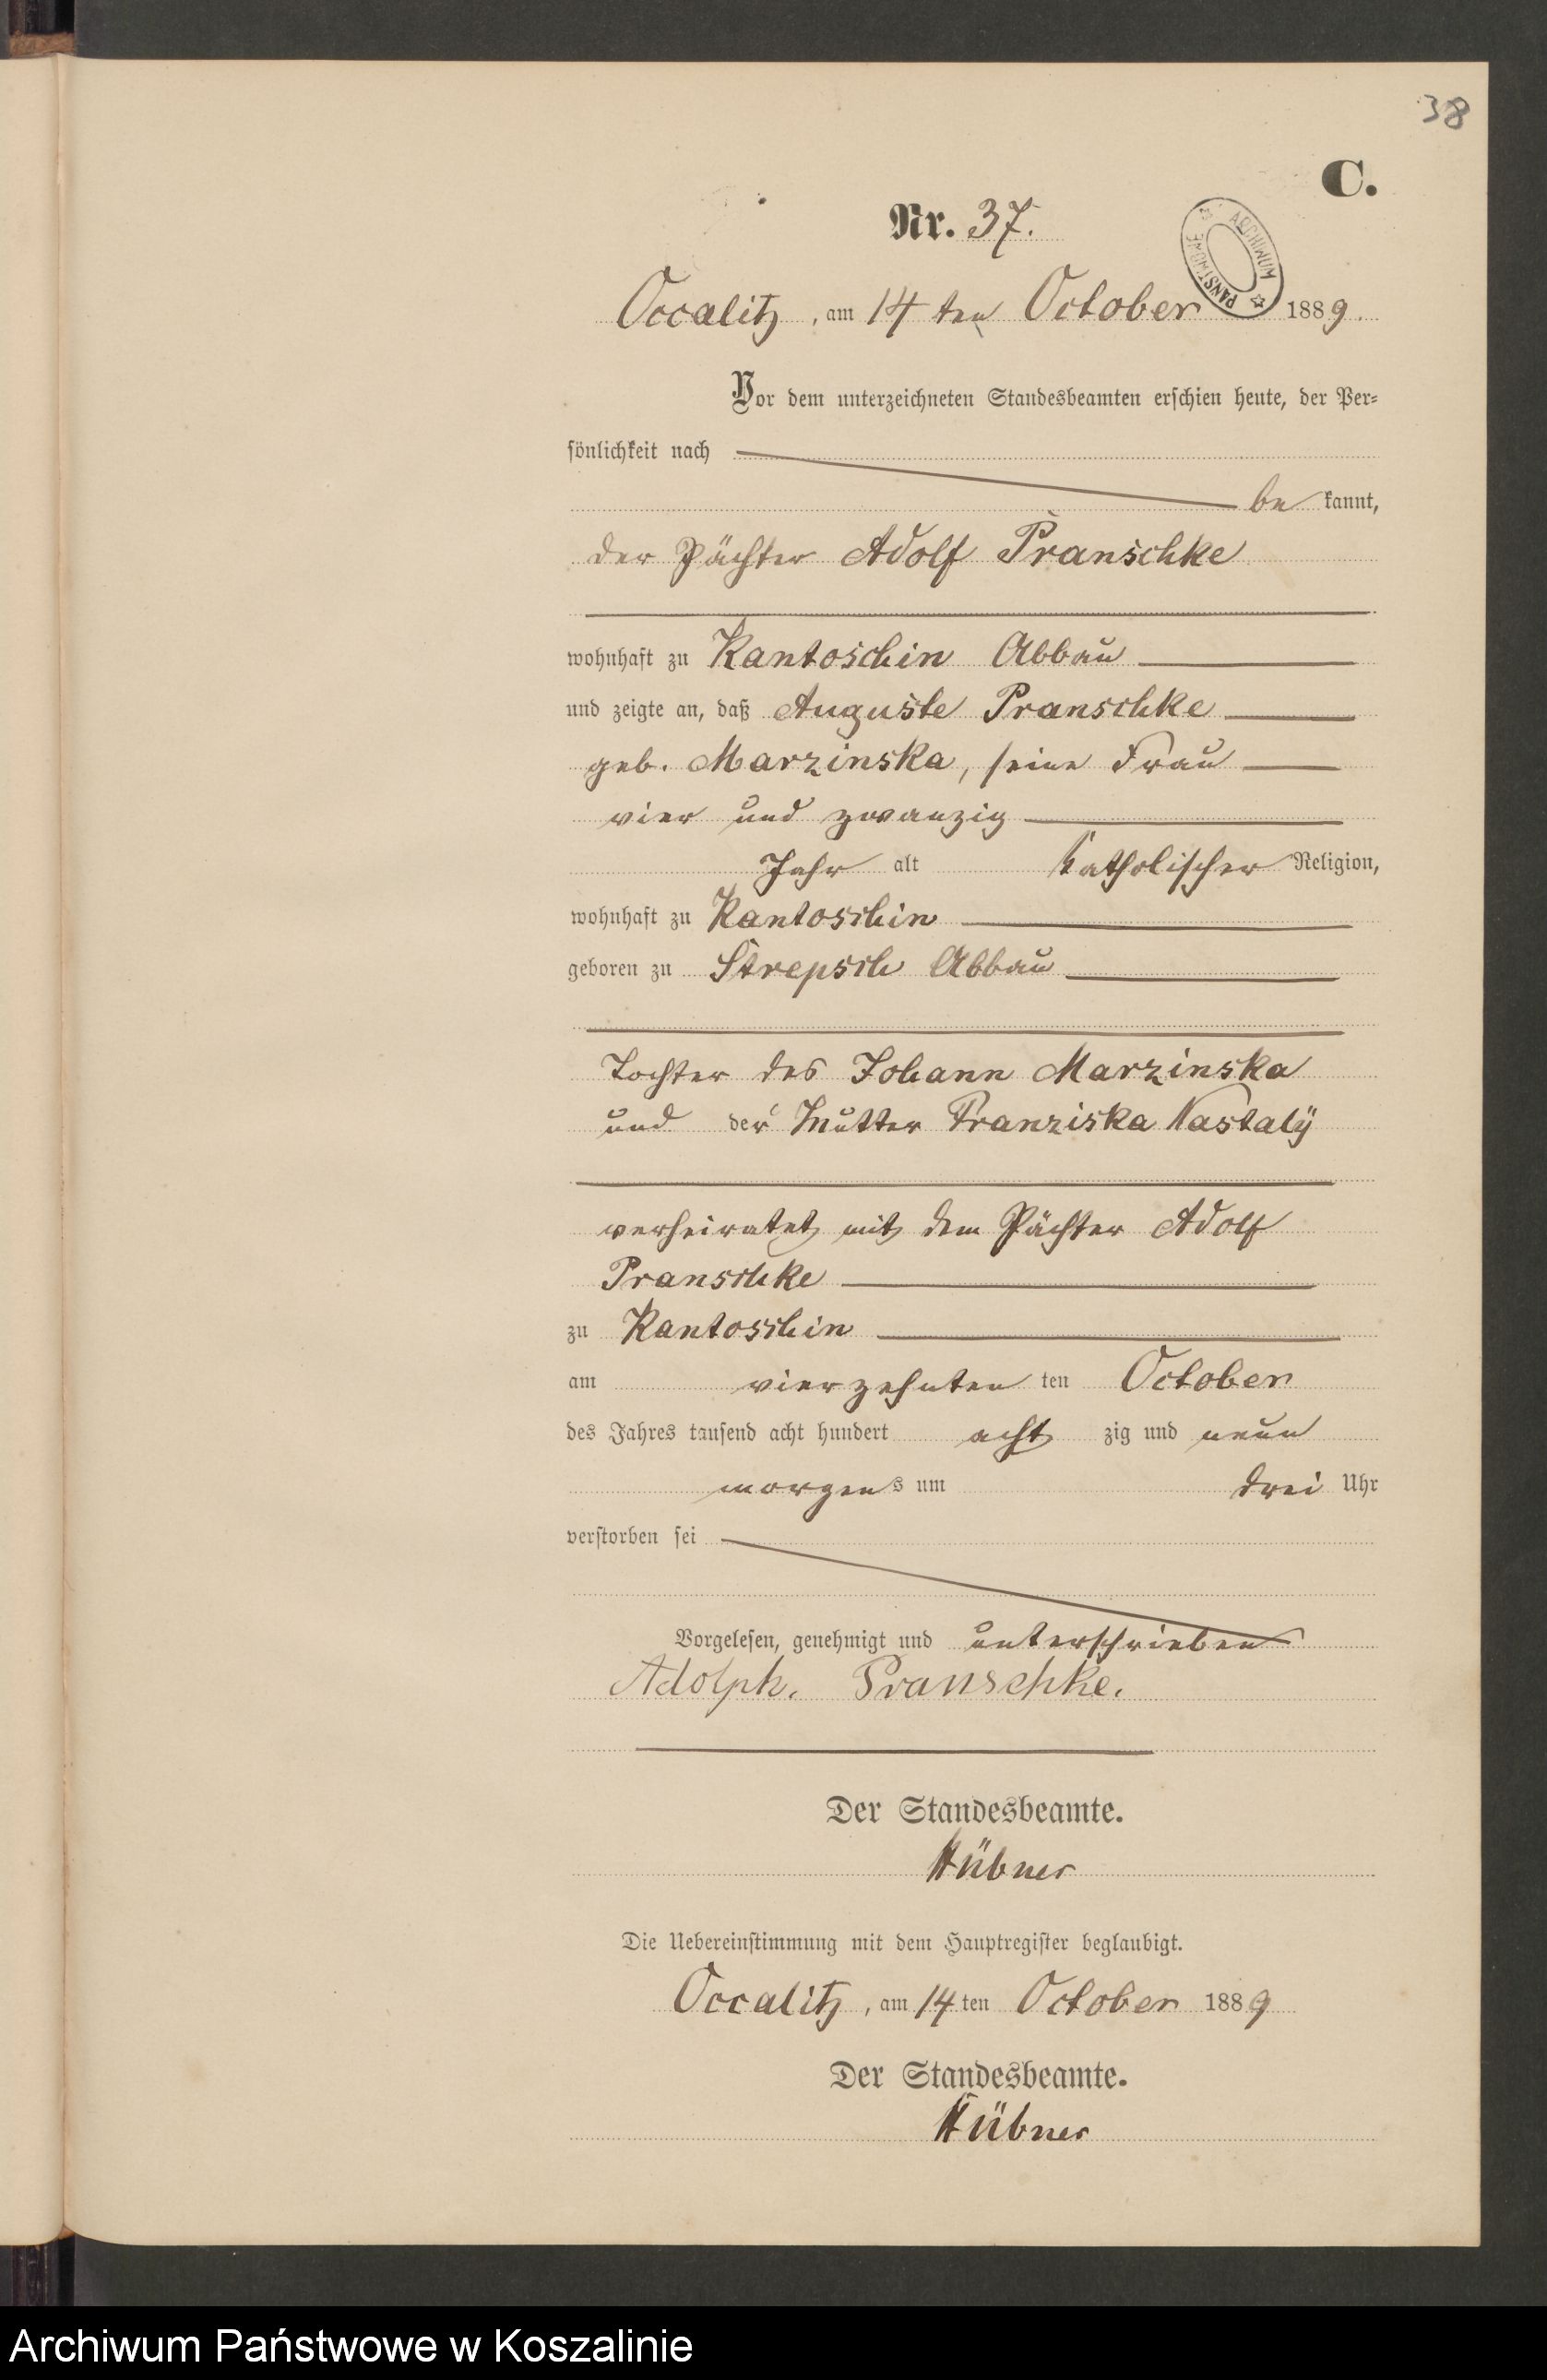 38
C.
Nr. 37.
ARCHIWUM PAŃSTWOWE
Occalitz, am 14 ten October 1889.
Vor dem unterzeichneten Standesbeamten erschien heute, der Per-
sönlichkeit nach
be kannt,
der Pächter Adolf Pranschke
wohnhaft zu Kantoschin Abbau
und zeigte an, daß Auguste Pranschke
geb. Marzinska, seine Frau
vier und zwanzig
Jahr alt katholischer Religion,
wohnhaft zu Kantoschin
geboren zu Strepsch Abbau
Tochter des Johann Marzinska
und der Mutter Franziska Nastalÿ
verheiratet mit dem Pächter Adolf
Pranschke
zu Kantoschin
am vierzehnten ten October
des Jahres tausend acht hundert acht zig und neun
morgens um drei Uhr
verstorben sei
Vorgelesen, genehmigt und unterschrieben
Adolph. Pranschke.
Der Standesbeamte.
Hübner
Die Uebereinstimmung mit dem Hauptregister beglaubigt.
Occalitz, am 14 ten October 1889
Der Standesbeamte.
Hübner
Archiwum Państwowe w Koszalinie